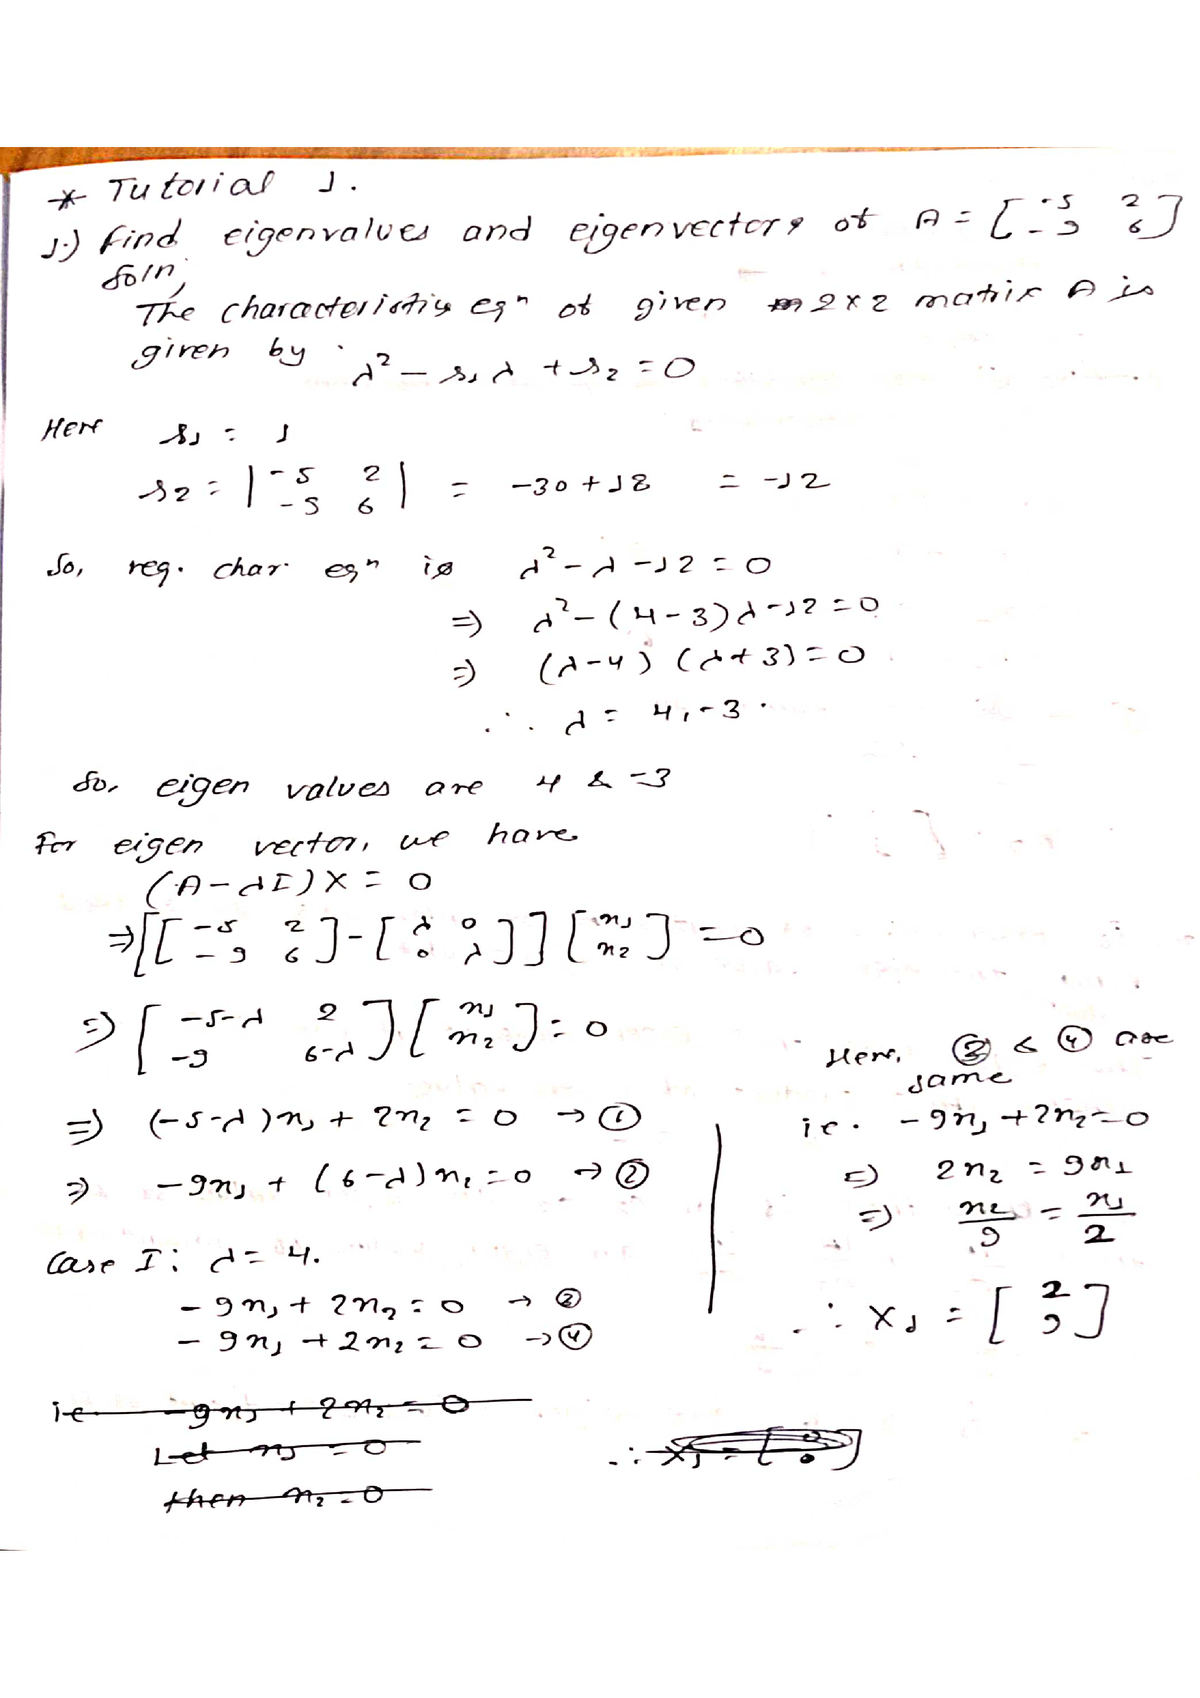 * Tutorial 1.
1.) Find eigenvalues and eigenvectors of A = [-5 2; -9 6]
Soln,
The characteristics eqn of given 2x2 matrix A is
given by
λ² - s₁λ + s₂ = 0
Here s₁ = 1
s₂ = |-5 2; -5 6| = -30 + 18 = -12
So, req. char. eqn is λ² - λ - 12 = 0
=) λ² - (4-3)λ - 12 = 0
=) (λ-4) (λ+3) = 0
∴ λ = 4, -3.
So, eigen values are 4 & -3
For eigen vector, we have
(A - λI)X = 0
⇒ [[-5 2; -9 6] - [λ 0; 0 λ]] [x₁; x₂] = 0
=) [-5-λ 2; -9 6-λ] [x₁; x₂] = 0
=) (-5-λ)x₁ + 2x₂ = 0 → ①
=) -9x₁ + (6-λ)x₂ = 0 → ②
Case I: λ = 4.
-9x₁ + 2x₂ = 0 → ③
-9x₁ + 2x₂ = 0 → ④
i.e. -9x₁ + 2x₂ = 0
Let x₁ = 0
then x₂ = 0
Here, ③ & ④ are
same
i.e. -9x₁ + 2x₂ = 0
=) 2x₂ = 9x₁
=) x₂/9 = x₁/2
∴ X₁ = [2; 9]